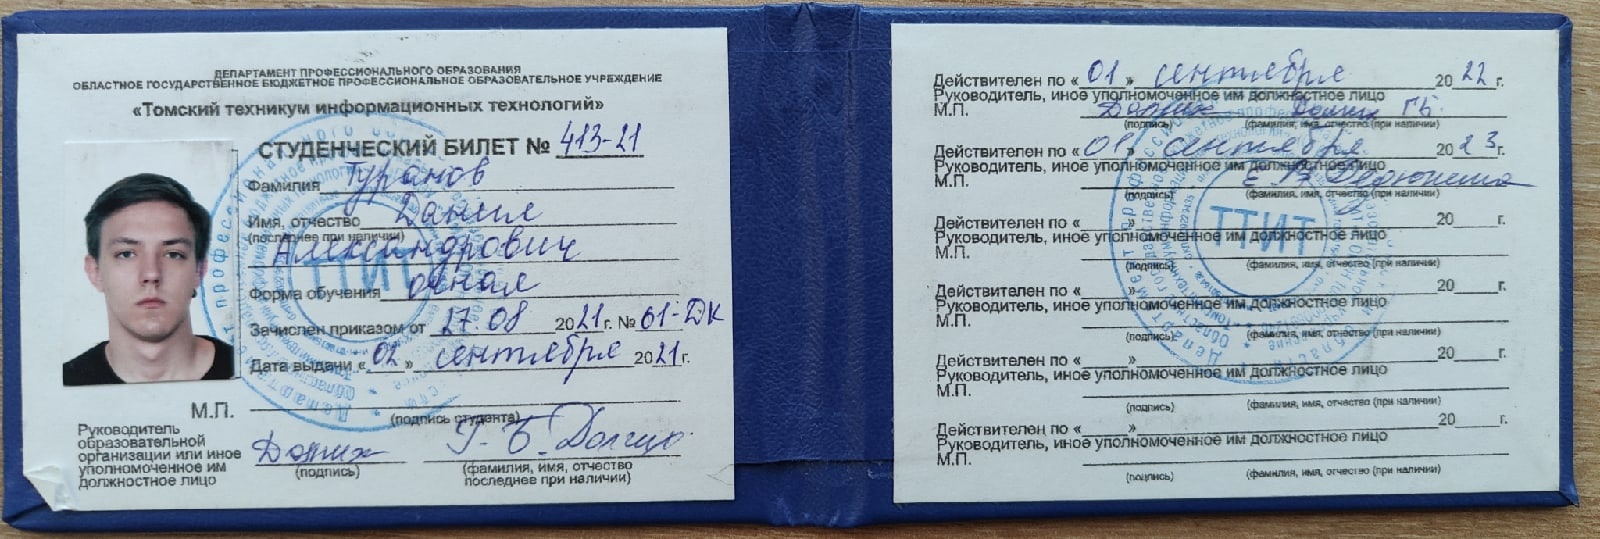 ДЕПАРТАМЕНТ ПРОФЕССИОНАЛЬНОГО ОБРАЗОВАНИЯ
ОБЛАСТНОЕ ГОСУДАРСТВЕННОЕ БЮДЖЕТНОЕ ПРОФЕССИОНАЛЬНОЕ ОБРАЗОВАТЕЛЬНОЕ УЧРЕЖДЕНИЕ
«Томский техникум информационных технологий»
СТУДЕНЧЕСКИЙ БИЛЕТ № 413-21
Фамилия Туранов
Имя, отчество Данил
(последнее при наличии)
Александрович
Форма обучения очная
Зачислен приказом от 27 08 2021 г. № 61-ДК
Дата выдачи «02» сентября 2021 г.
М.П.
(подпись студента)
Руководитель
образовательной
организации или иное
уполномоченное им
должностное лицо
(подпись)
Г. Б.
(фамилия, имя, отчество
последнее при наличии)
ТТИТ
Действителен по «01» сентября 2022 г.
Руководитель, иное уполномоченное им должностное лицо
М.П. Г.Б.
(подпись) (фамилия, имя, отчество (при наличии)
Действителен по «01» сентября 2023 г.
Руководитель, иное уполномоченное им должностное лицо
М.П. Е В
(подпись) (фамилия, имя, отчество (при наличии)
Действителен по « » 20 г.
Руководитель, иное уполномоченное им должностное лицо
М.П.
(подпись) (фамилия, имя, отчество (при наличии)
Действителен по « » 20 г.
Руководитель, иное уполномоченное им должностное лицо
М.П.
(подпись) (фамилия, имя, отчество (при наличии)
Действителен по « » 20 г.
Руководитель, иное уполномоченное им должностное лицо
М.П.
(подпись) (фамилия, имя, отчество (при наличии)
Действителен по « » 20 г.
Руководитель, иное уполномоченное им должностное лицо
М.П.
(подпись) (фамилия, имя, отчество (при наличии)
ТТИТ